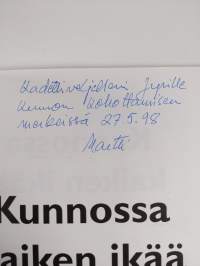 Kadettiveljelleni Jyrille
kunnon kohottamisen
merkeissä 27.5.98
Martti
Kunnossa
aiken ikää